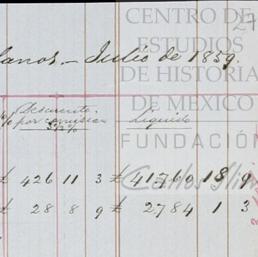 CENTRO DE
ESTUDIOS
DE HISTORIA
DE MÉXICO
FUNDACIÓN
Carlos Slim
27
lanos. — Julio de 1859.
Descuento Liquido
por
£ 426 11 3 £ 41760 18 9
£ 28 8 9 £ 2784 1 3